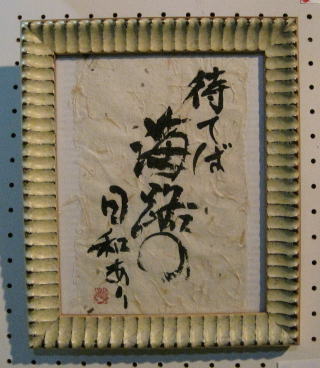 待てば
海路の
日和あり